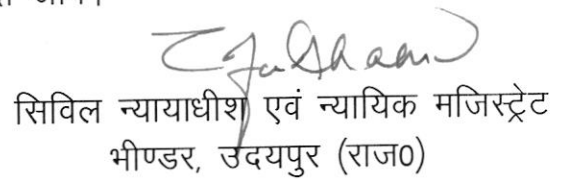 सिविल न्यायाधीश एवं न्यायिक मजिस्ट्रेट
भीण्डर, उदयपुर (राज0)